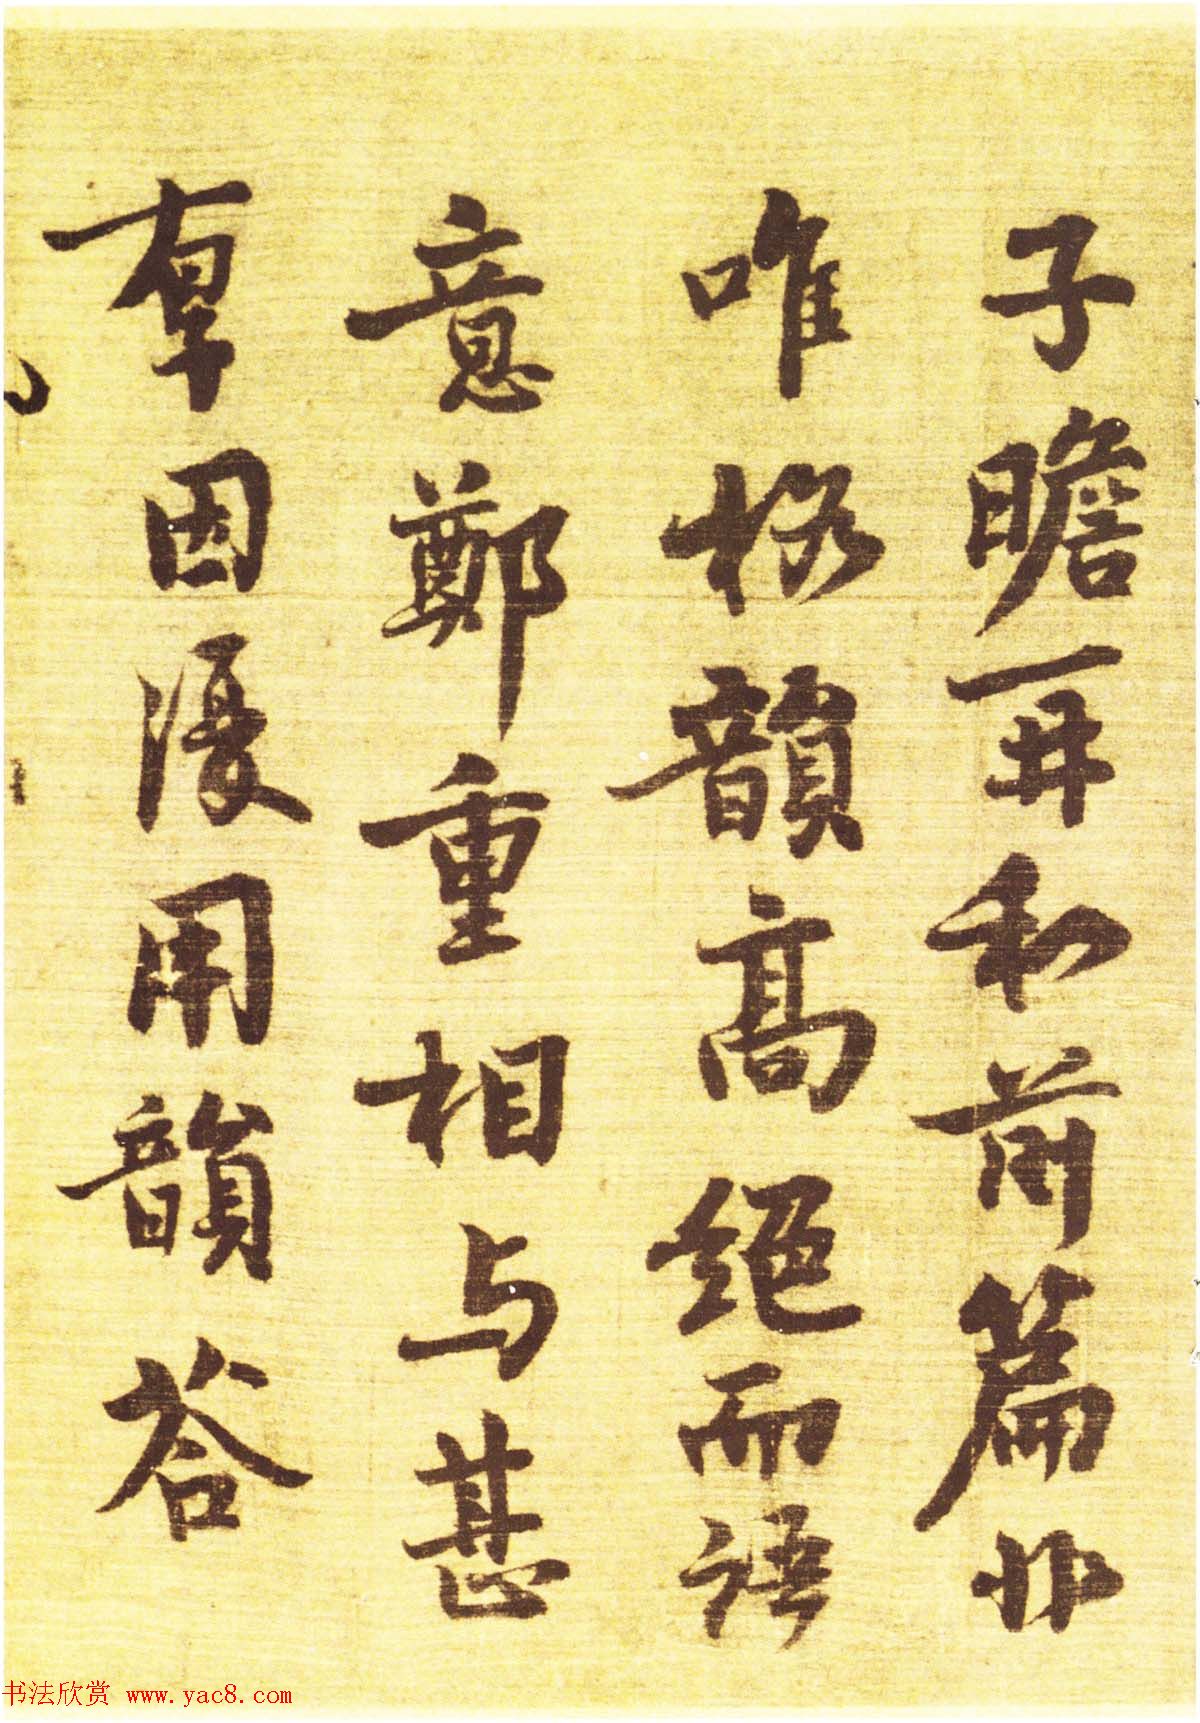 子瞻再和前篇非
唯格韻高絕而語
意鄭重相与甚
厚因復用韻答
书法欣赏 www.yac8.com